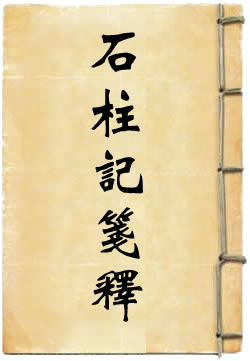 石柱記箋釋